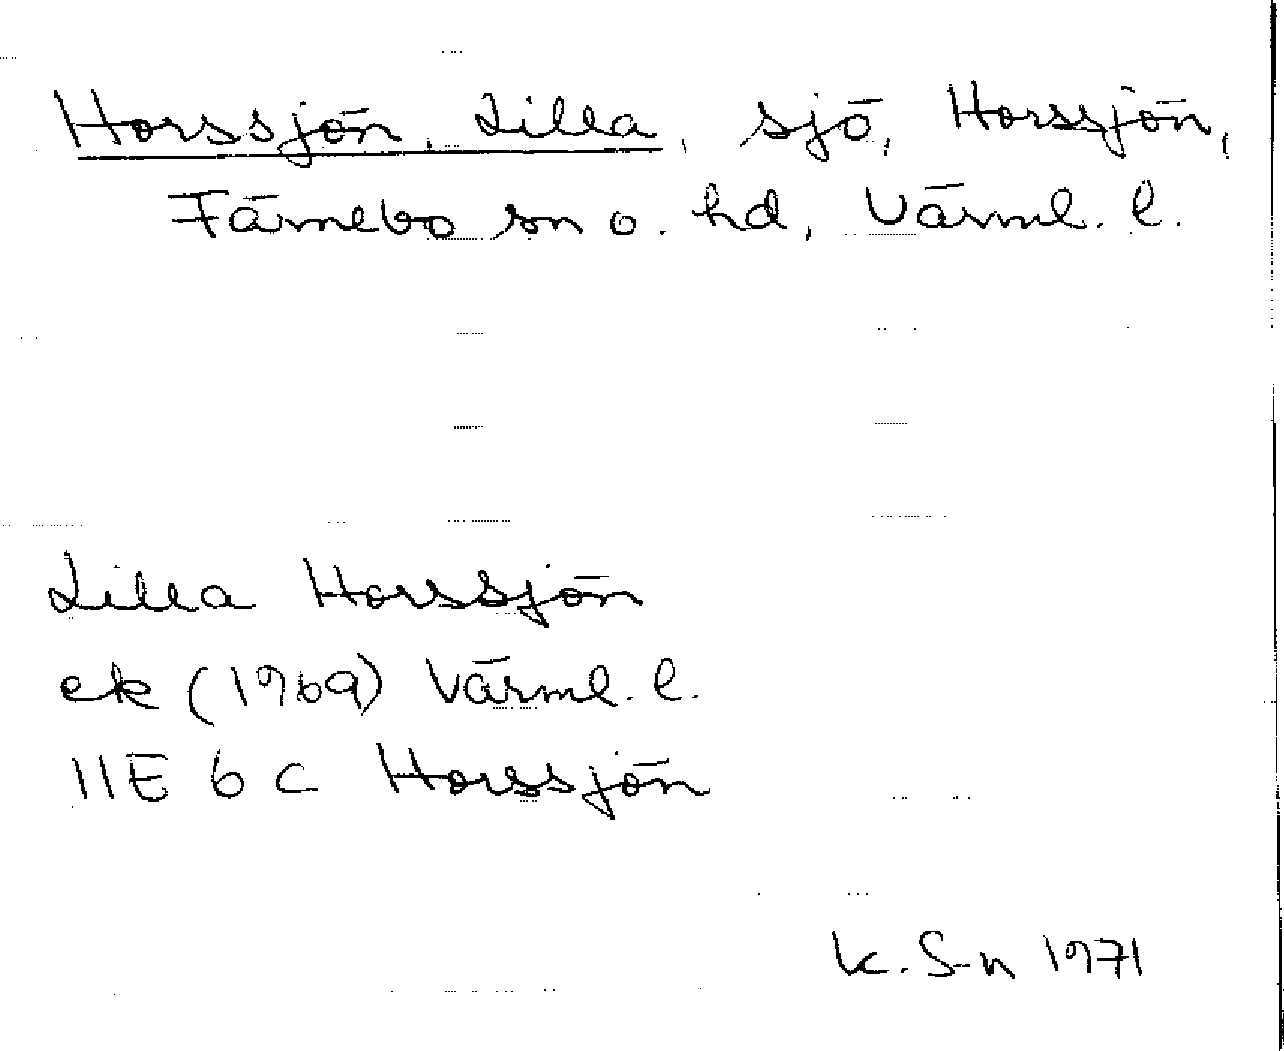 Horssjön, Lilla, sjö, Horssjön,
Färnebo sn o. hd, Värml. l.
Lilla Horssjön
ek (1969) Värml. l.
11E 6 C Horssjön
K. S-n 1971